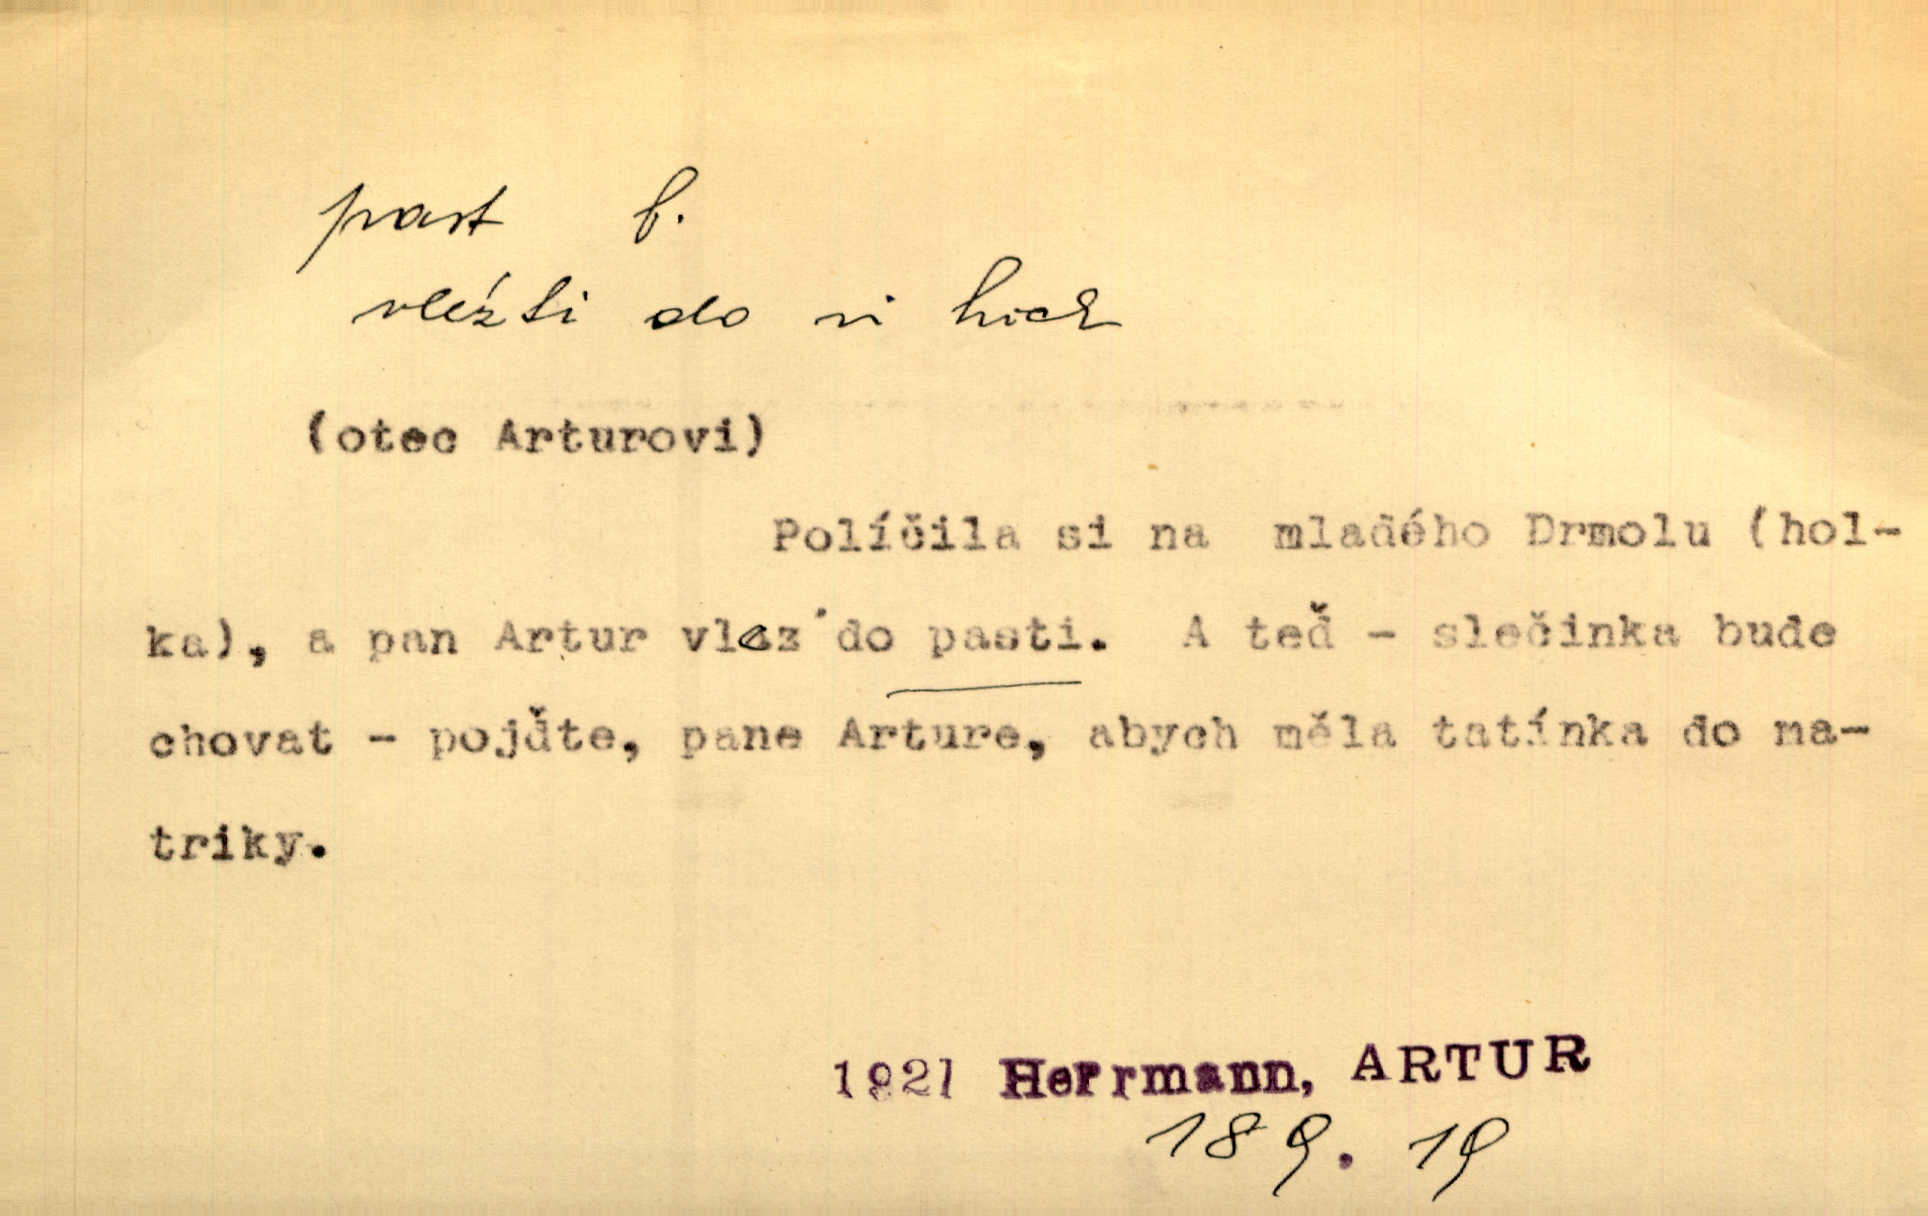 past f.
vlézti do ní
(otec Arturovi)
Políčila si na mladého Drmolu (hol-
ka), a pan Artur vlez do pasti. A teď - slečinka bude
chovat - pojďte, pane Arture, abych měla tatínka do ma-
triky.
1921 Herrmann, ARTUR
189. 19